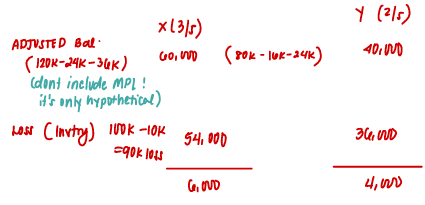 X (3/5) Y (2/5)
ADJUSTED Bal. 60,000 (80K-16K-24K) 40,000
(120K-24K-36K)
(dont include MPL!
it's only hypothetical)
Loss (Invtry) 100K-10K 54,000 36,000
=90K loss
6,000 4,000